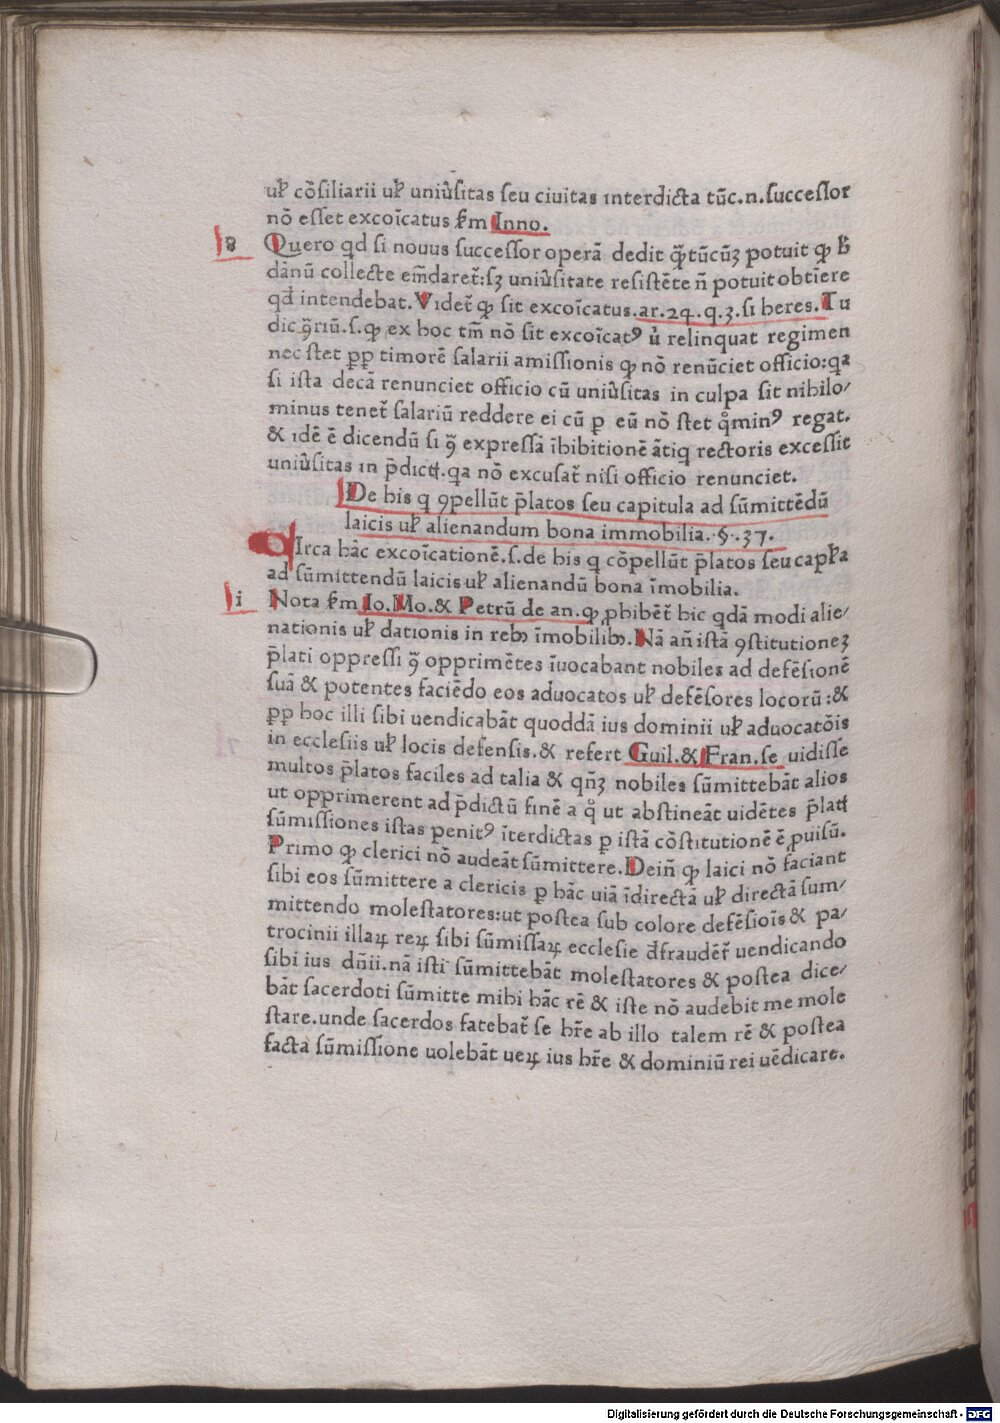 ul̵ cõsiliarii ul̵ uniũsitas seu ciuitas interdicta tũc.n.successor
nõ esset excoĩcatus ẜm Inno.
8 Quero qd si nouus successor operã dedit q̃tũcũꝫ potuit ꝙ ħ
dãnũ collecte emẽdaret̃:sꝫ uniũsitate resistẽte ñ potuit obtĩere
qd̃ intendebat.Videt̃ ꝙ sit excoĩcatus.ar.24.q.3.si heres.Tu
dic ꝯ̃riũ.s.ꝙ ex hoc tm̃ nõ sit excoĩcatꝰ ũ relinquat regimen
nec stet ꝓpꝑ timorẽ salarii amissionis ꝙ nõ renũciet officio:qa
si ista decã renunciet officio cũ uniũsitas in culpa sit nihilo/
minus tenet̃ salariũ reddere ei cũ ꝑ eũ nõ stet q̊minꝰ regat.
& idẽ ẽ dicendũ si ꝯ̃ expressã ĩhibitionẽ ãtiq rectoris excessit
uniũsitas in p̃dictꝭ.qa nõ excusat̃ nisi officio renunciet.
De his q ꝯpellũt p̃latos seu capitula ad sũmittẽdũ
laicis ul̵ alienandum bona immobilia.§.37.
CIrca hãc excoĩcationẽ.s.de his q cõpellũt p̃latos seu capl̵a
ad sũmittendũ laicis ul̵ alienandũ bona ĩmobilia.
i Nota ẜm Io.Mo.& Petrũ de an.ꝙ ꝓhibẽt̃ hic qdã modi alie/
nationis ul̵ dationis in rebꝫ ĩmobilibꝫ.Nã añ istã ꝯstitutionẽꝫ
p̃lati oppressi ꝯ̃ opprimẽtes ĩuocabant nobiles ad defẽsionẽ
suã & potentes faciẽdo eos aduocatos ul̵ defẽsores locorũ:&
ꝓpꝑ hoc illi sibi uendicabãt quoddã ius dominii ul̵ aduocatõis
in ecclesiis ul̵ locis defensis.& refert Guil.& Fran.se uidisse
multos p̃latos faciles ad talia & qñꝫ nobiles sũmittebãt alios
ut opprimerent ad p̃dictũ finẽ a q̊ ut abstineãt uidẽtes p̃latꝭ
sũmissiones istas penitꝰ ĩterdictas ꝑ istã cõstitutionẽ ẽ ꝓuisũ.
Primo ꝙ clerici nõ audeãt sũmittere.Deiñ ꝙ laici nõ faciant
sibi eos sũmittere a clericis ꝑ hãc uiã ĩdirectã ul̵ directã sum/
mittendo molestatores:ut postea sub colore defẽsiõis & pa/
trocinii illaꝝ reꝝ sibi sũmissaꝝ ecclesie d̃fraudẽt̃ uendicando
sibi ius dñii.nã isti sũmittebãt molestatores & postea dice/
bãt sacerdoti sũmitte mihi hãc rẽ & iste nõ audebit me mole
stare.unde sacerdos fatebat̃ se hr̃e ab illo talem rẽ & postea
facta sũmissione uolebãt ueꝝ ius hr̃e & dominiũ rei uẽdicare.
Digitalisierung gefördert durch die Deutsche Forschungsgemeinschaft - DFG